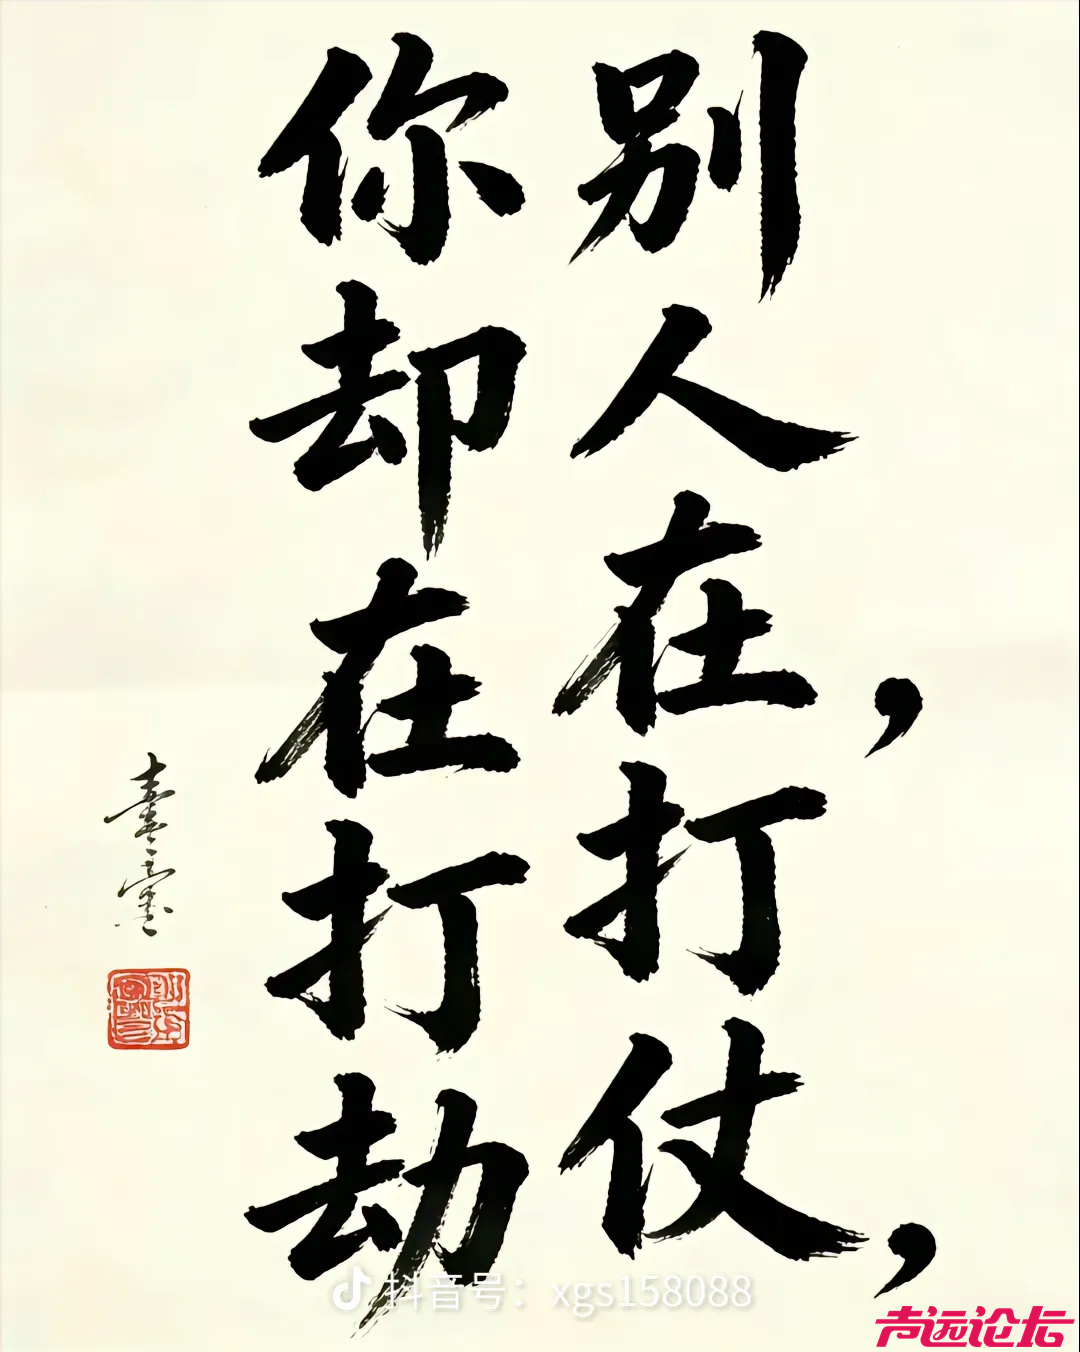 别人在,打仗,
你却在打劫
抖音号：xgs158088
声远论坛